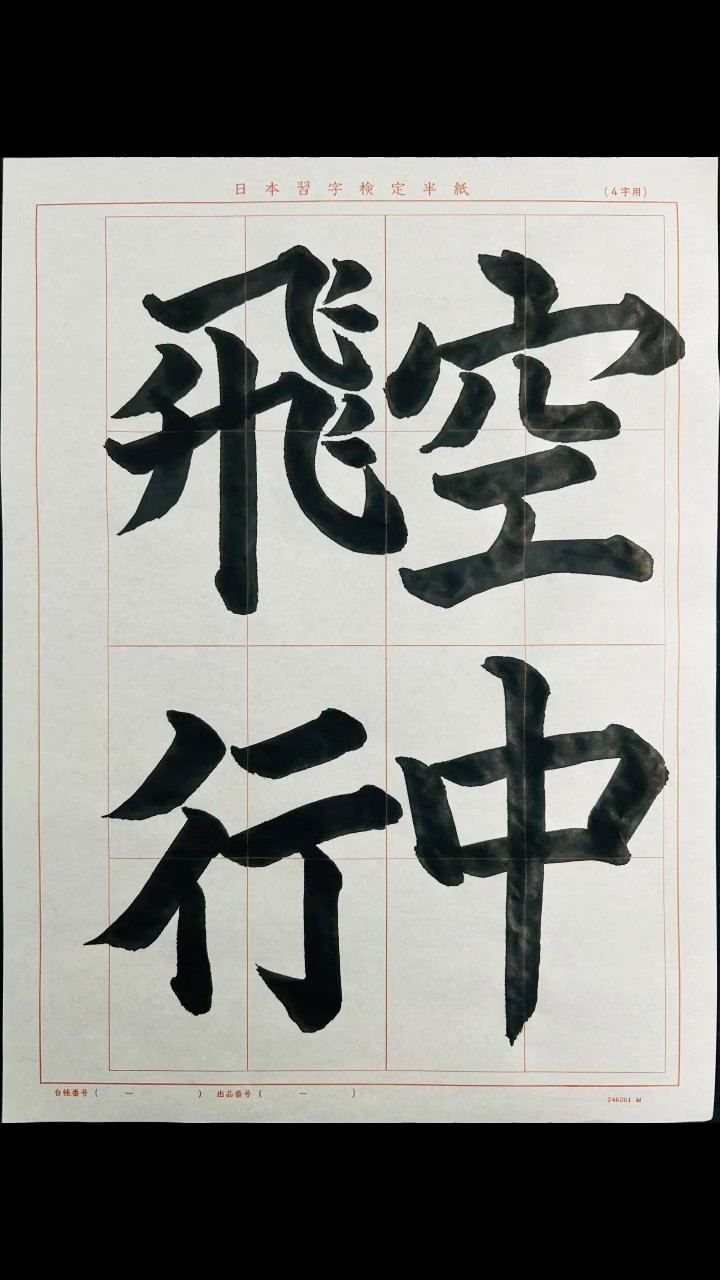 日本習字検定半紙
(4字用)
空中
飛行
台帳番号( ー ) 出品番号( ー )
240201 M